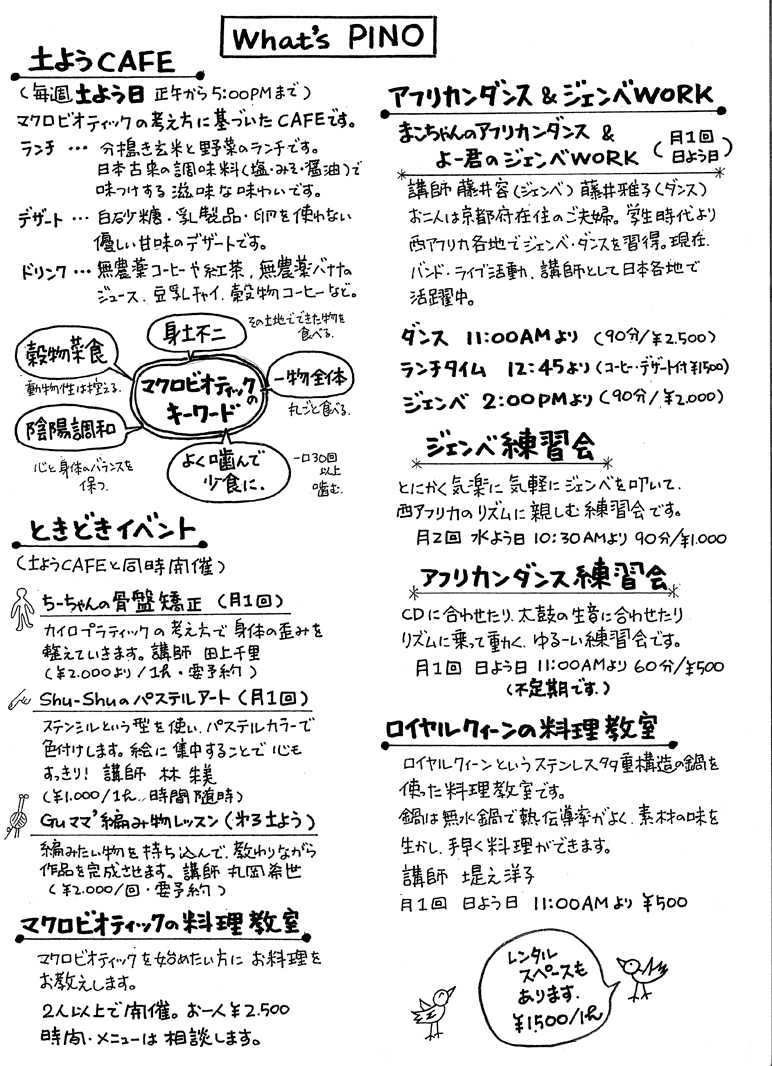 What's PINO
土ようCAFE
(毎週土よう日 正午から5:00PMまで)
マクロビオティックの考え方に基づいたCAFEです。
ランチ … 分搗き玄米と野菜のランチです。
日本古来の調味料(塩・みそ・醤油)で
味つけする滋味な味わいです。
デザート … 白砂糖・乳製品・卵を使わない
優しい甘味のデザートです。
ドリンク … 無農薬コーヒーや紅茶、無農薬バナナの
ジュース、豆乳チャイ、穀物コーヒーなど。
穀物菜食
動物性は控える。
身土不二
その土地でできた物を
食べる。
マクロビオティックの
キーワード
一物全体
丸ごと食べる。
陰陽調和
心と身体のバランスを
保つ。
よく噛んで
少食に。
一口30回
以上
噛む。
ときどきイベント
(土ようCAFEと同時開催)
ちーちゃんの骨盤矯正(月1回)
カイロプラティックの考え方で身体の歪みを
整えていきます。講師 田上千里
(¥2.000より/1h・要予約)
Shu-Shuのパステルアート(月1回)
ステンシルという型を使い、パステルカラーで
色付けします。絵に集中することで心も
すっきり! 講師 林 朱美
(¥1.000/1h、時間随時)
Guママ'編み物レッスン(第3土よう)
編みたい物を持ち込んで、教わりながら
作品を完成させます。講師 丸岡希世
(¥2.000/回・要予約)
マクロビオティックの料理教室
マクロビオティックを始めたい方に お料理を
お教えします。
2人以上で開催。お一人¥2.500
時間・メニューは相談します。
アフリカンダンス&ジェンベWORK
まこちゃんのアフリカンダンス &
よー君のジェンベWORK (月1回
日よう日)
講師 藤井容(ジェンベ) 藤井雅子(ダンス)
お二人は京都府在住のご夫婦。学生時代より
西アフリカ各地でジェンベ・ダンスを習得。現在、
バンド・ライブ活動、講師として日本各地で
活躍中。
ダンス 11:00AMより (90分/¥2.500)
ランチタイム 12:45より(コーヒー・デザート付¥1500)
ジェンベ 2:00PMより(90分/¥2.000)
ジェンベ練習会
とにかく気楽に気軽にジェンベを叩いて、
西アフリカのリズムに親しむ練習会です。
月2回 水よう日 10:30AMより 90分/¥1.000
アフリカンダンス練習会
CDに合わせたり、太鼓の生音に合わせたり
リズムに乗って動く、ゆるーい練習会です。
月1回 日よう日 11:00AMより 60分/¥500
(不定期です。)
ロイヤルクィーンの料理教室
ロイヤルクィーンというステンレス多重構造の鍋を
使った料理教室です。
鍋は無水鍋で熱伝導率がよく、素材の味を
生かし、手早く料理ができます。
講師 堤之洋子
月1回 日よう日 11:00AMより ¥500
レンタル
スペースも
あります。
¥1.500/1h